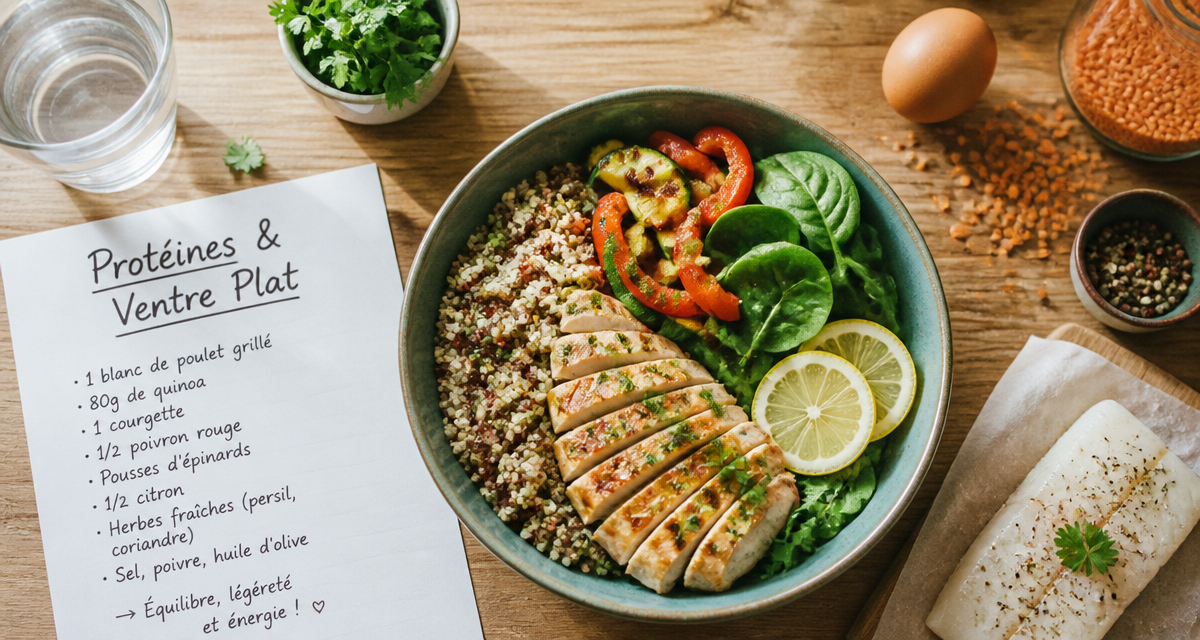 Protéines &
Ventre Plat
• 1 blanc de poulet grillé
• 80g de quinoa
• 1 courgette
• 1/2 poivron rouge
• Pousses d'épinards
• 1/2 citron
• Herbes fraîches (persil,
coriandre)
• Sel, poivre, huile d'olive
→ Équilibre, légéreté
et énergie ! ♡